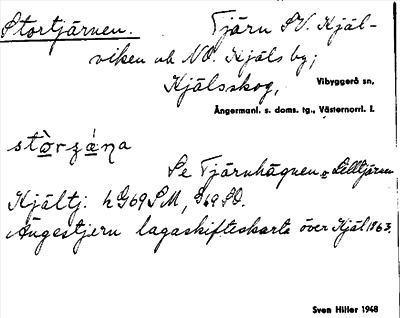 Stortjärnen. Tjärn SV. Kjäl-
viken ok NO. Kjäls by;
Kjälsskog, Vibyggerå sn,
Ångermanl. s. doms. tg., Västernorrl. l.
stòrzána
Se Tjärnhägnen o Lilltjärnen
Kjältj: h G69 SM,
Ängestjern lagaskifteskarta över Kjäl 1863.
Sven Hiller 1948